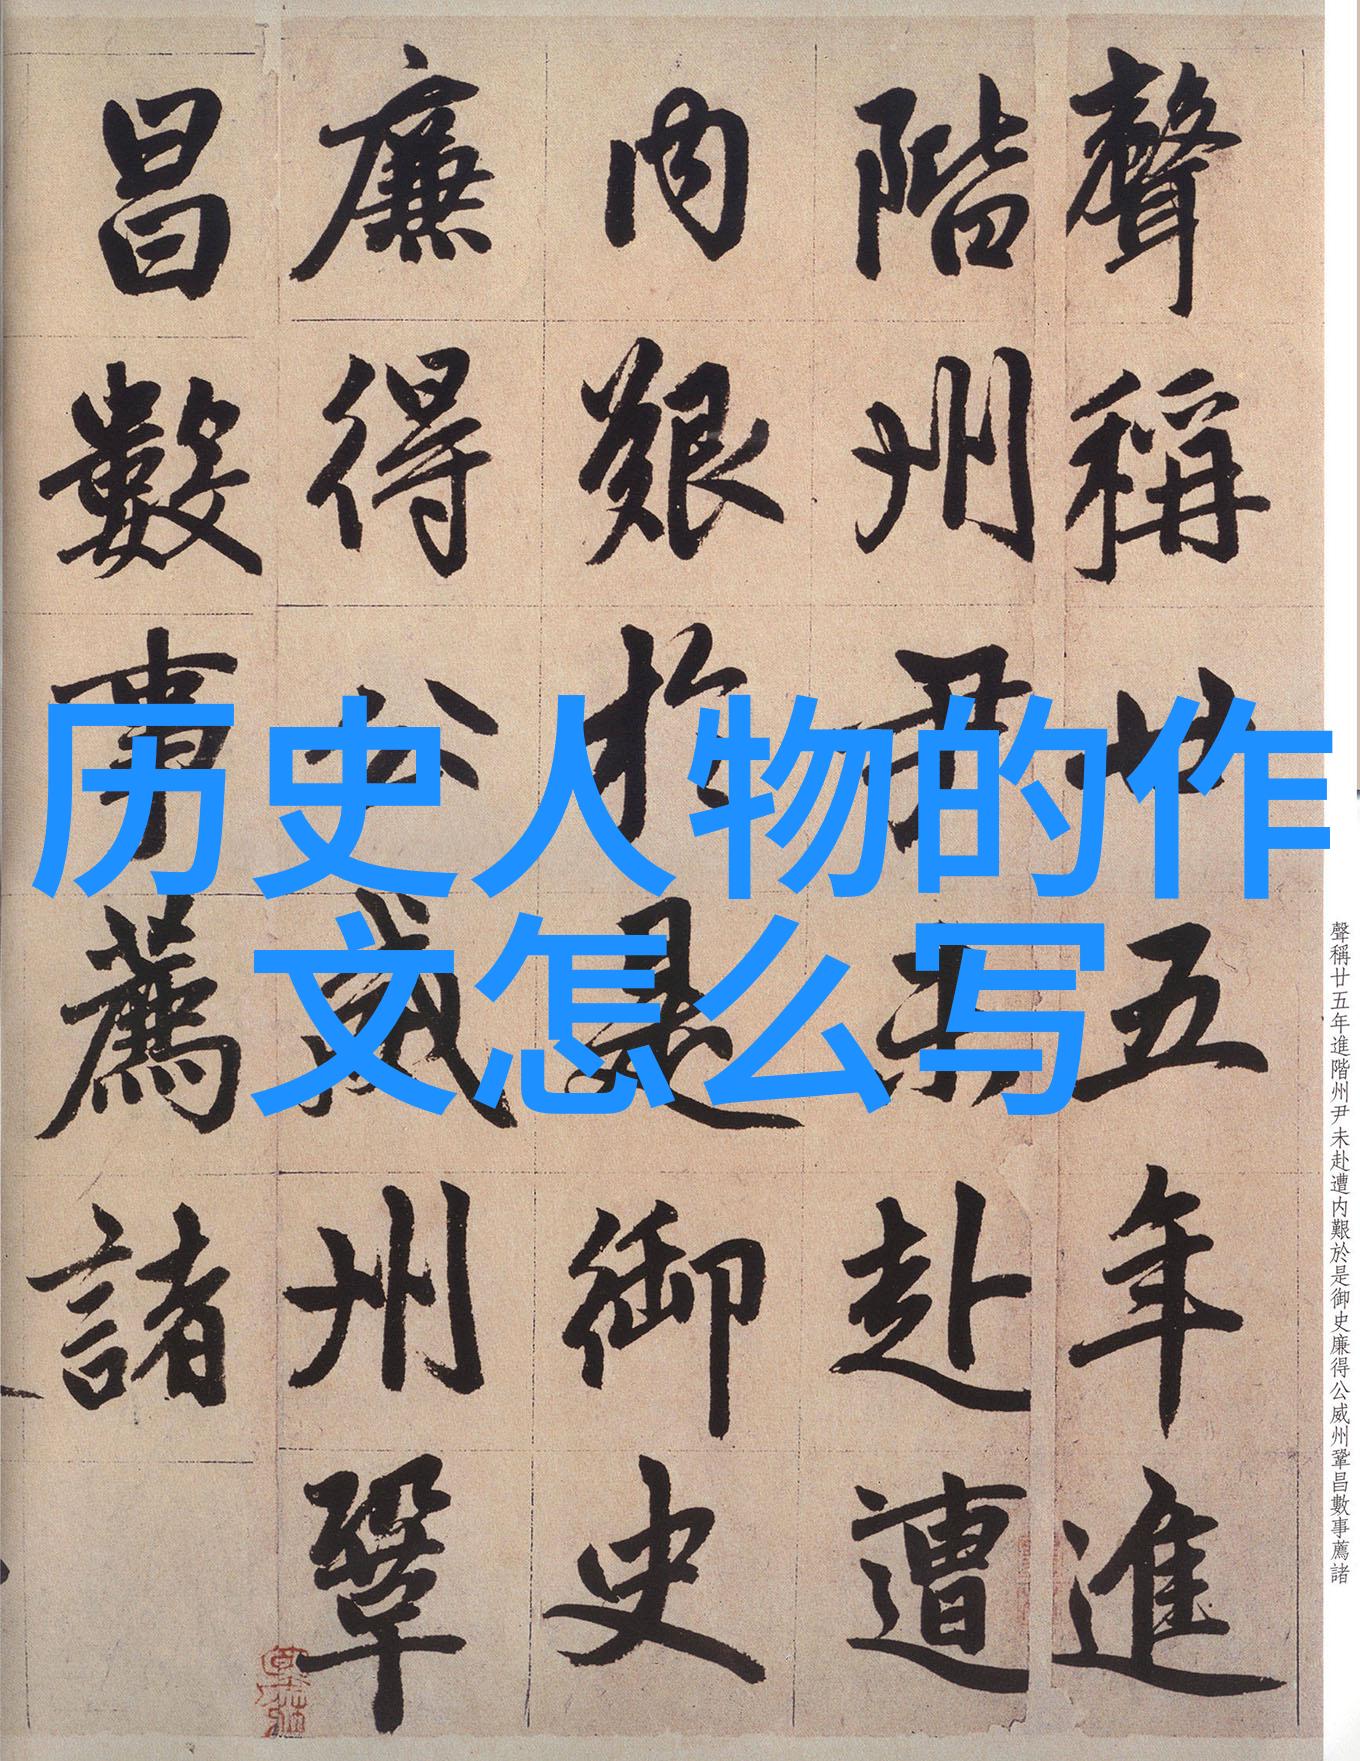 聲稱廿五年進
階州尹未赴遭
内艱於是御史
廉得公威州鞏
昌數事薦諸
历史人物的作
文怎么写
聲稱廿五年進階州尹未赴遭内艱於是御史廉得公威州鞏昌數事薦諸